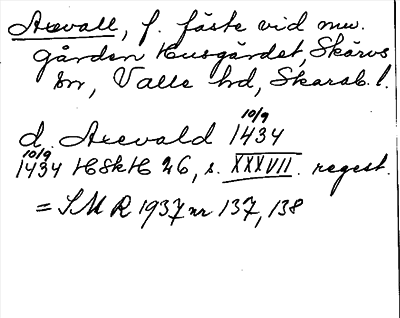 Axvall, f. fäste vid nuv.
gården Husgärdet, Skärvs
sn, Valle hd, Skarab. l.
d. Axevald 10/9 1434
10/9 1434 HSkH 26, s. XXXVII. regest.
= SMR 1937 nr 137, 138